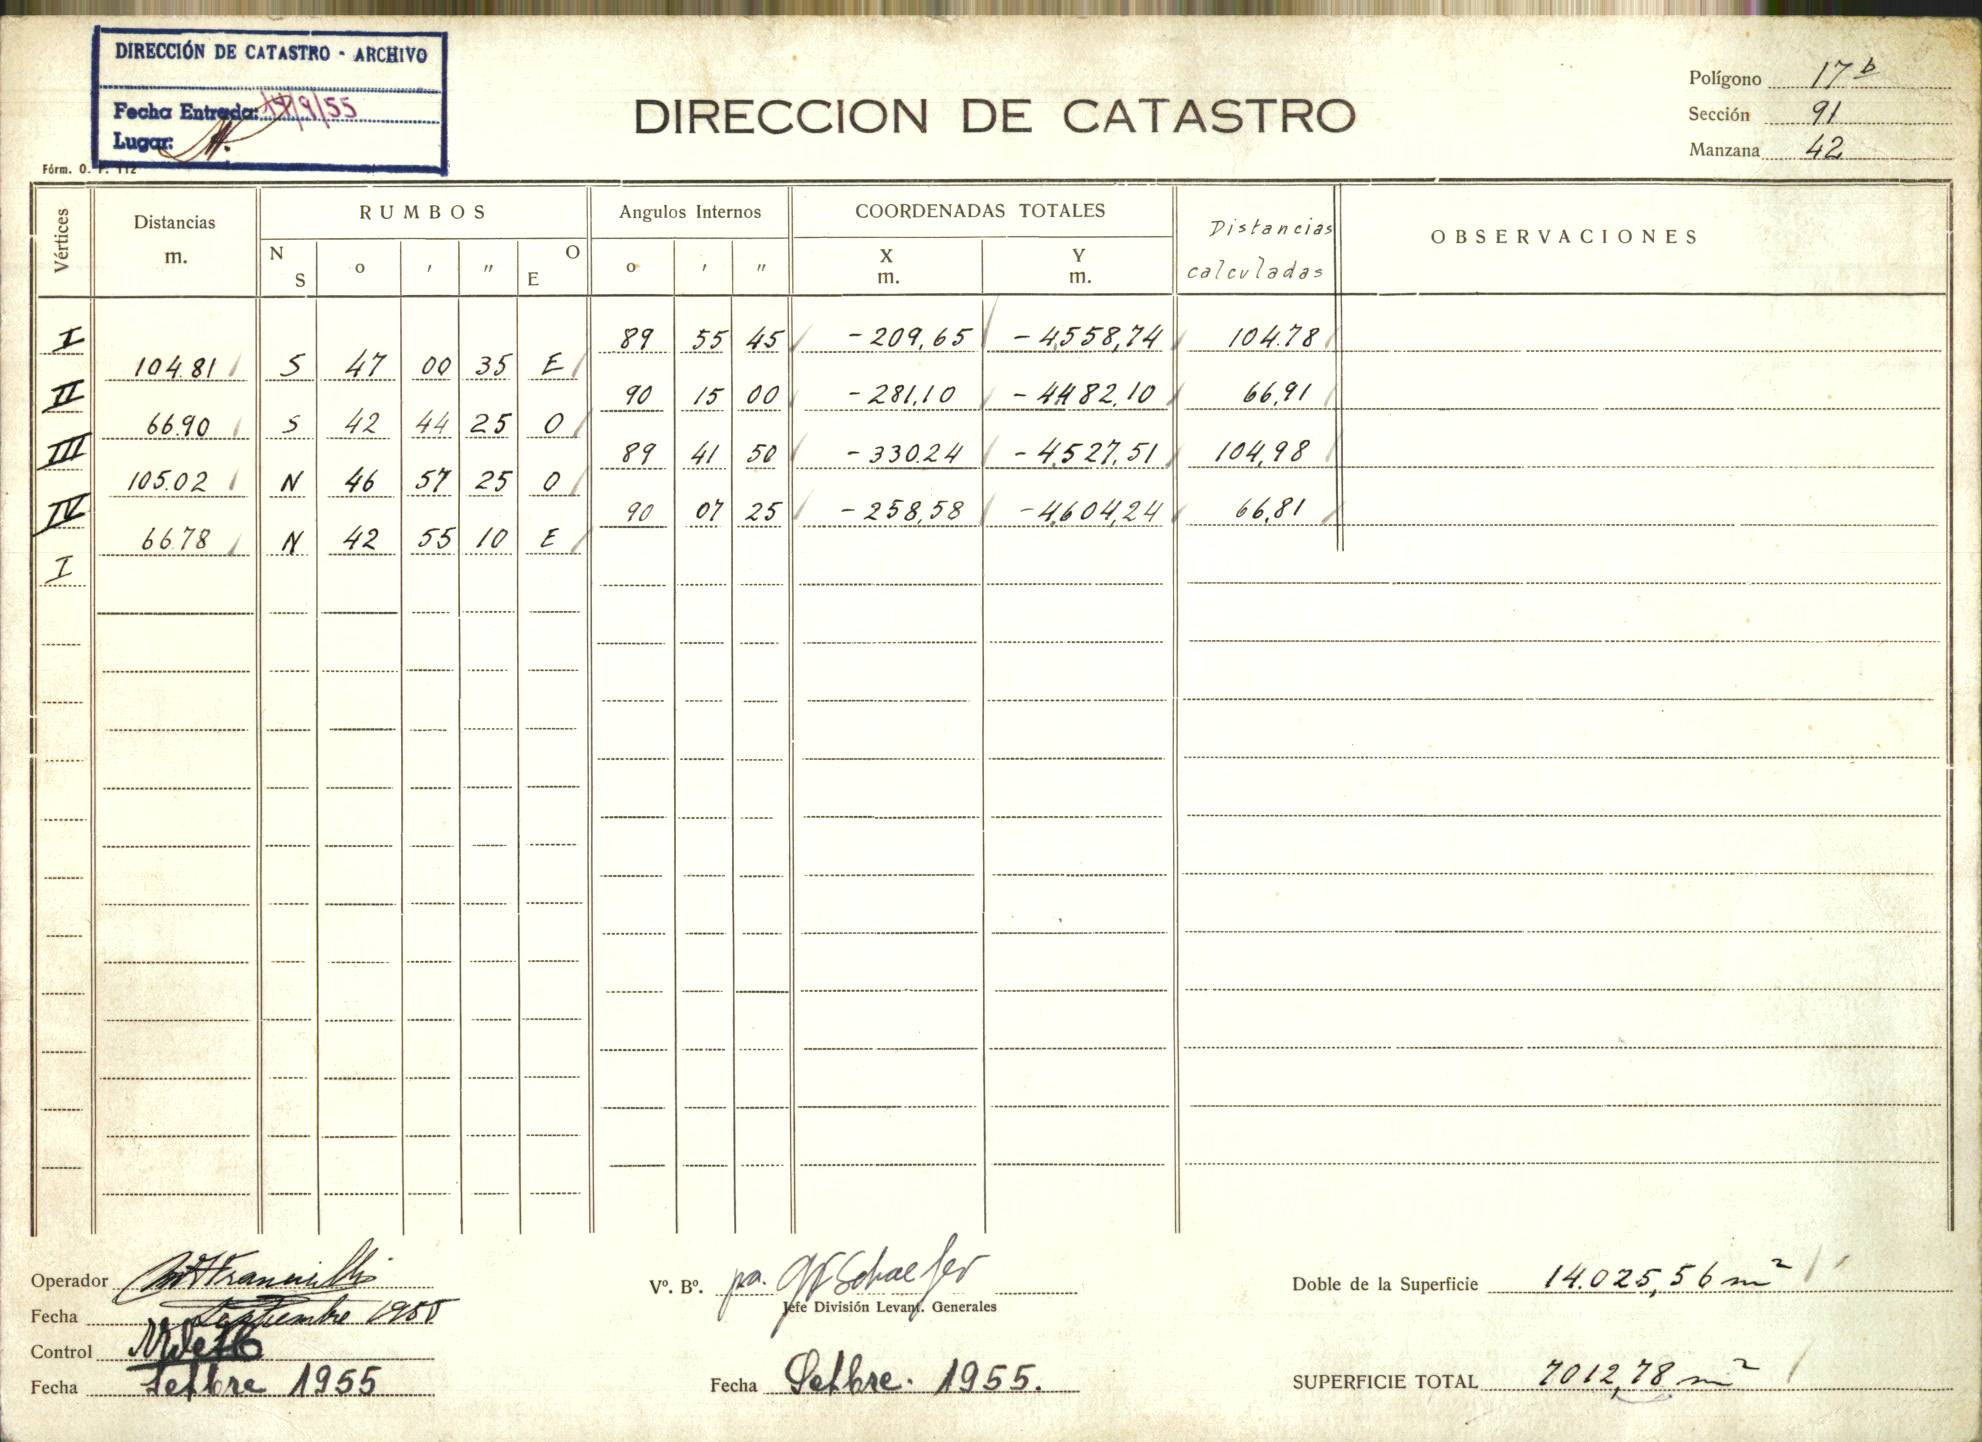 DIRECCIÓN DE CATASTRO - ARCHIVO
Fecha Entrada: /9/55
Lugar:
Fórm. O. P. 112
DIRECCION DE CATASTRO
Polígono 17 b
Sección 91
Manzana 42
Vértices
Distancias
m.
RUMBOS
N S
o
'
"
O E
Angulos Internos
o
'
"
COORDENADAS TOTALES
X
m.
Y
m.
Distancias
calculadas
OBSERVACIONES
I 89 55 45 -209,65 -4.558,74 104.78
104.81 S 47 00 35 E
II 90 15 00 -281,10 -4482,10 66,91
66.90 S 42 44 25 O
III 89 41 50 -330.24 -4.527,51 104,98
105.02 N 46 57 25 O
IV 90 07 25 -258,58 -4.604,24 66,81
66.78 N 42 55 10 E
I
Operador
Fecha Septiembre 1955
Control
Fecha Setbre 1955
Vº. Bº. pa. Schaefer
Jefe División Levant. Generales
Fecha Setbre. 1955.
Doble de la Superficie 14.025,56 m²
SUPERFICIE TOTAL 7012,78 m²